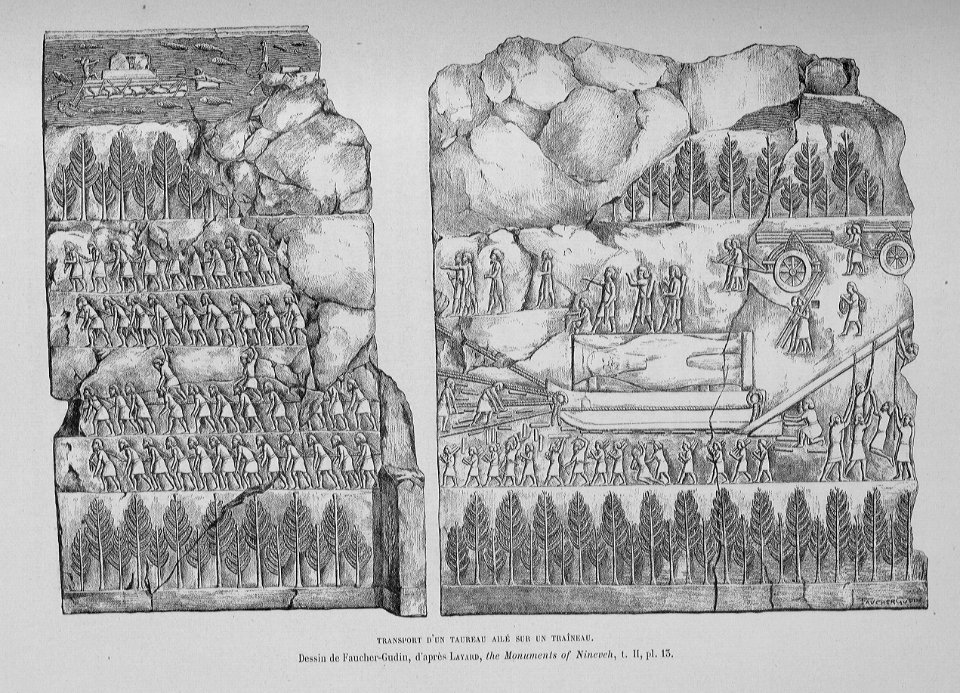 FAUCHER-GUDIN
TRANSPORT D'UN TAUREAU AILÉ SUR UN TRAÎNEAU.
Dessin de Faucher-Gudin, d'après LAYARD, the Monuments of Nineveh, t. II, pl. 13.